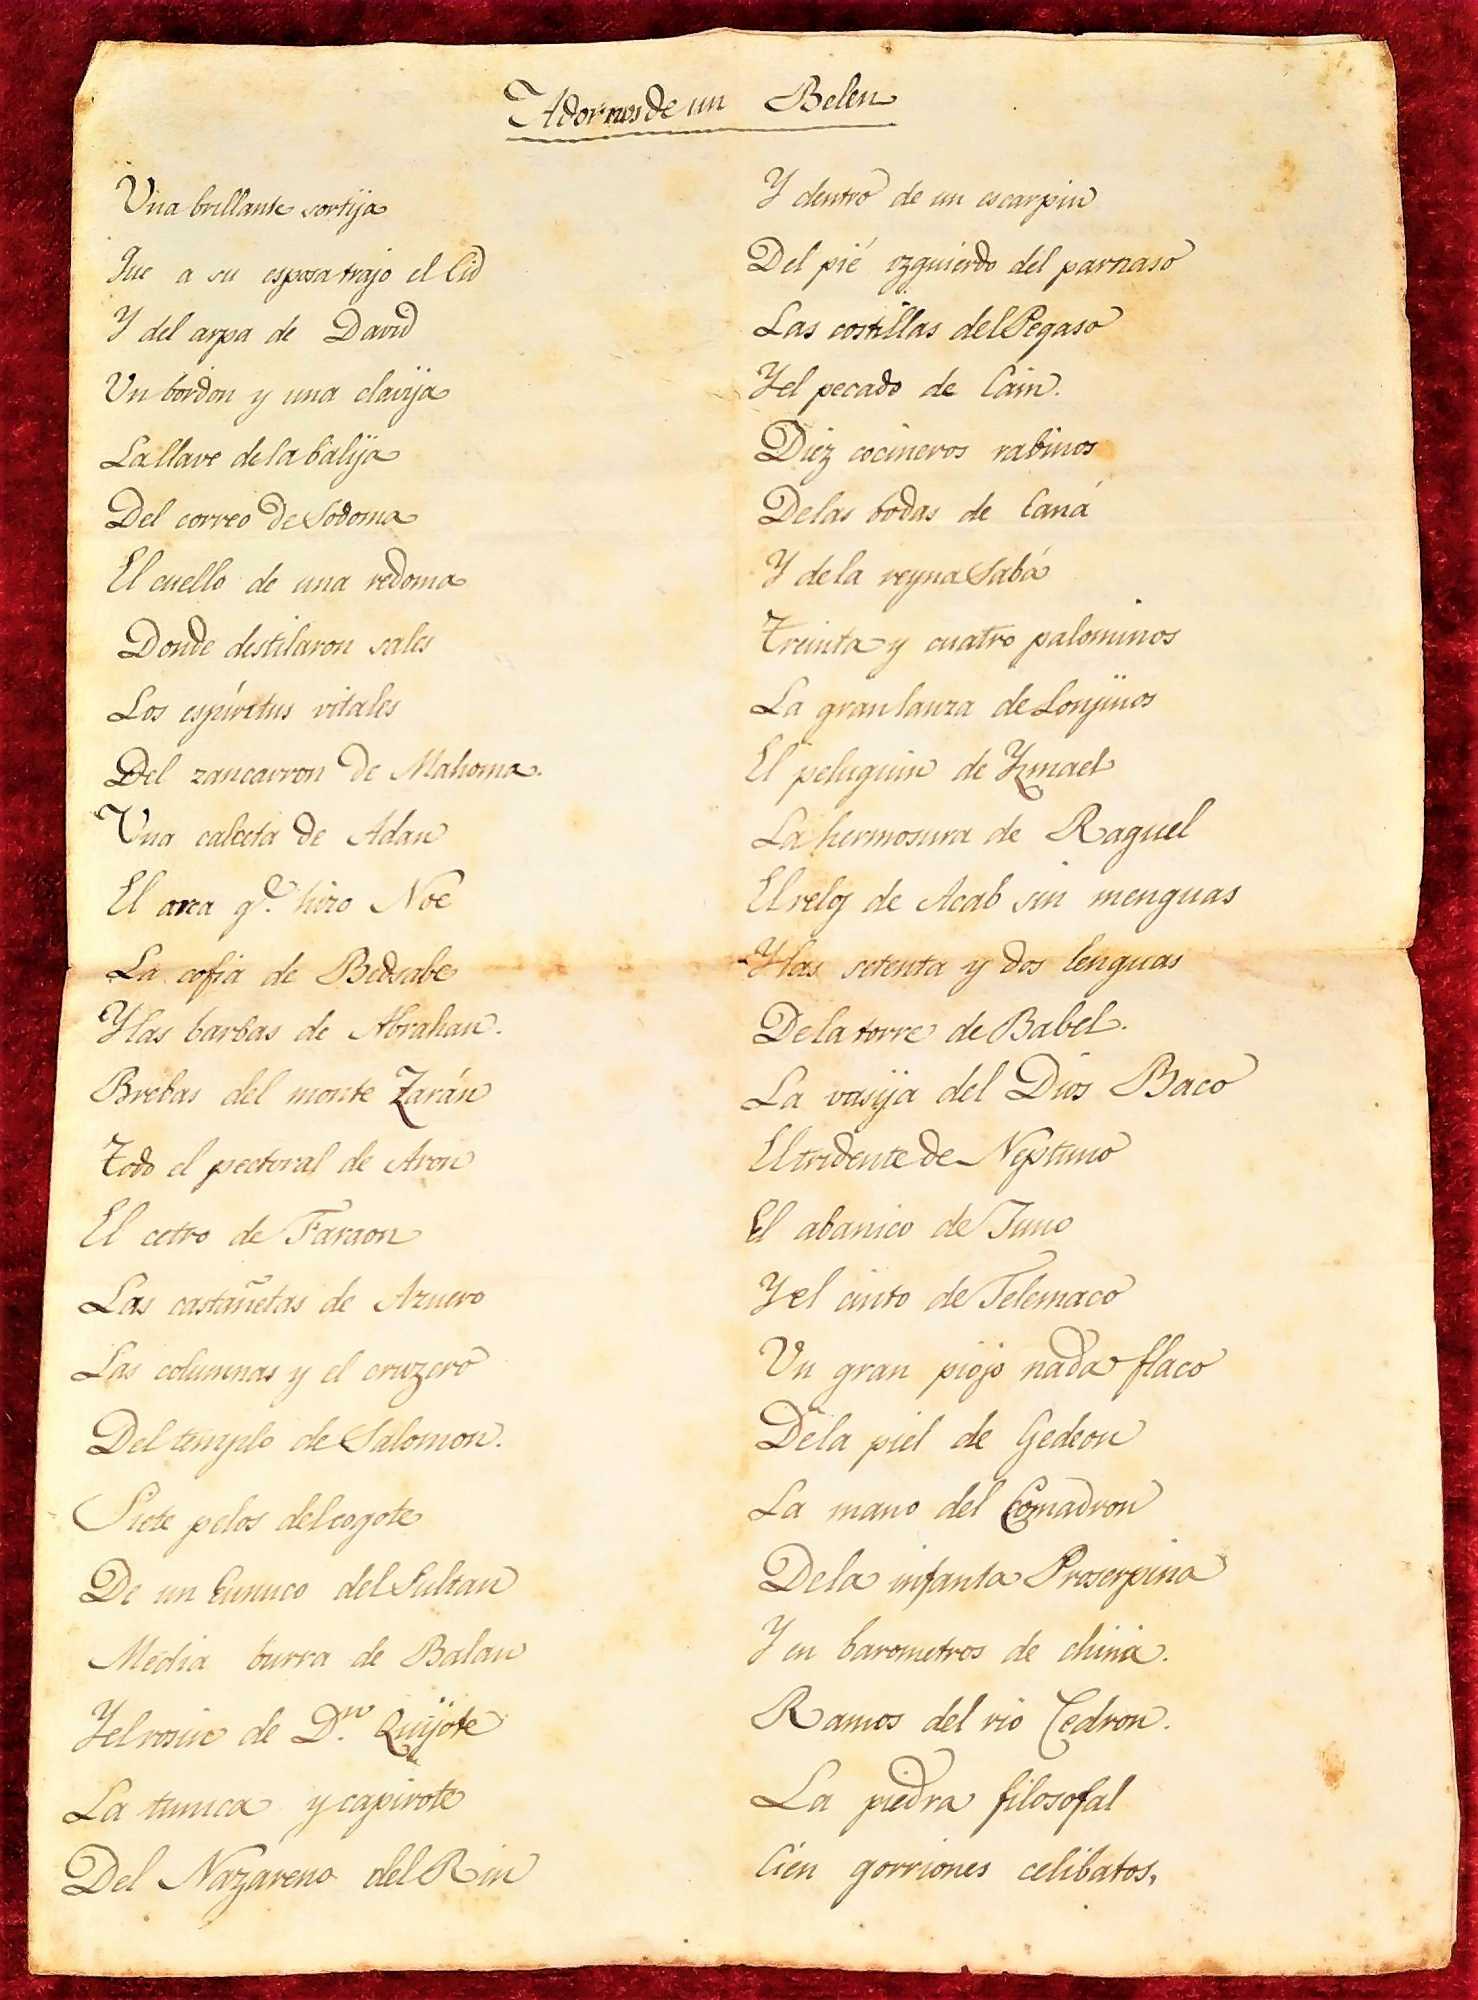 Adornos de un Belen
Una brillante sortija
Que a su esposa trajo el Cid
Y del arpa de David
Un bordon y una clavija
La llave de la balija
Del correo de Sodoma
El cuello de una redoma
Donde destilaron sales
Los espíritus vitales
Del zancarron de Mahoma.
Una calceta de Adan
El arca qe. hizo Noe
La cofia de Bedsabe
Y las barbas de Abrahan.
Brebas del monte Zarán
Todo el pectoral de Aron
El cetro de Faraon
Las castañetas de Aznero
Las columnas y el cruzero
Del templo de Salomon.
Siete pelos del cogote
De un Eunuco del Sultan
Media burra de Balan
Y el rosin de Dn. Quijote
La tunica y capirote
Del Nazareno del Rin
Y dentro de un escarpin
Del pié izquierdo del parnaso
Las costillas del Pegaso
Y el pecado de Cain.
Diez cocineros rabinos
De las bodas de Caná
Y de la reyna Sabá
Treinta y cuatro palominos
La gran lanza de Lonjinos
El peluquin de Ysmael
La hermosura de Raquel
El reloj de Acab sin menguas
Y las setenta y dos lenguas
De la torre de Babel.
La vasija del Dios Baco
El tridente de Neptuno
El abanico de Juno
Y el cinto de Telemaco
Un gran piojo nada flaco
De la piel de Gedeon
La mano del Comadron
De la infanta Proserpina
Y en barometros de china.
Ramos del rio Cedron.
La piedra filosofal
Cien gorriones celibatos,